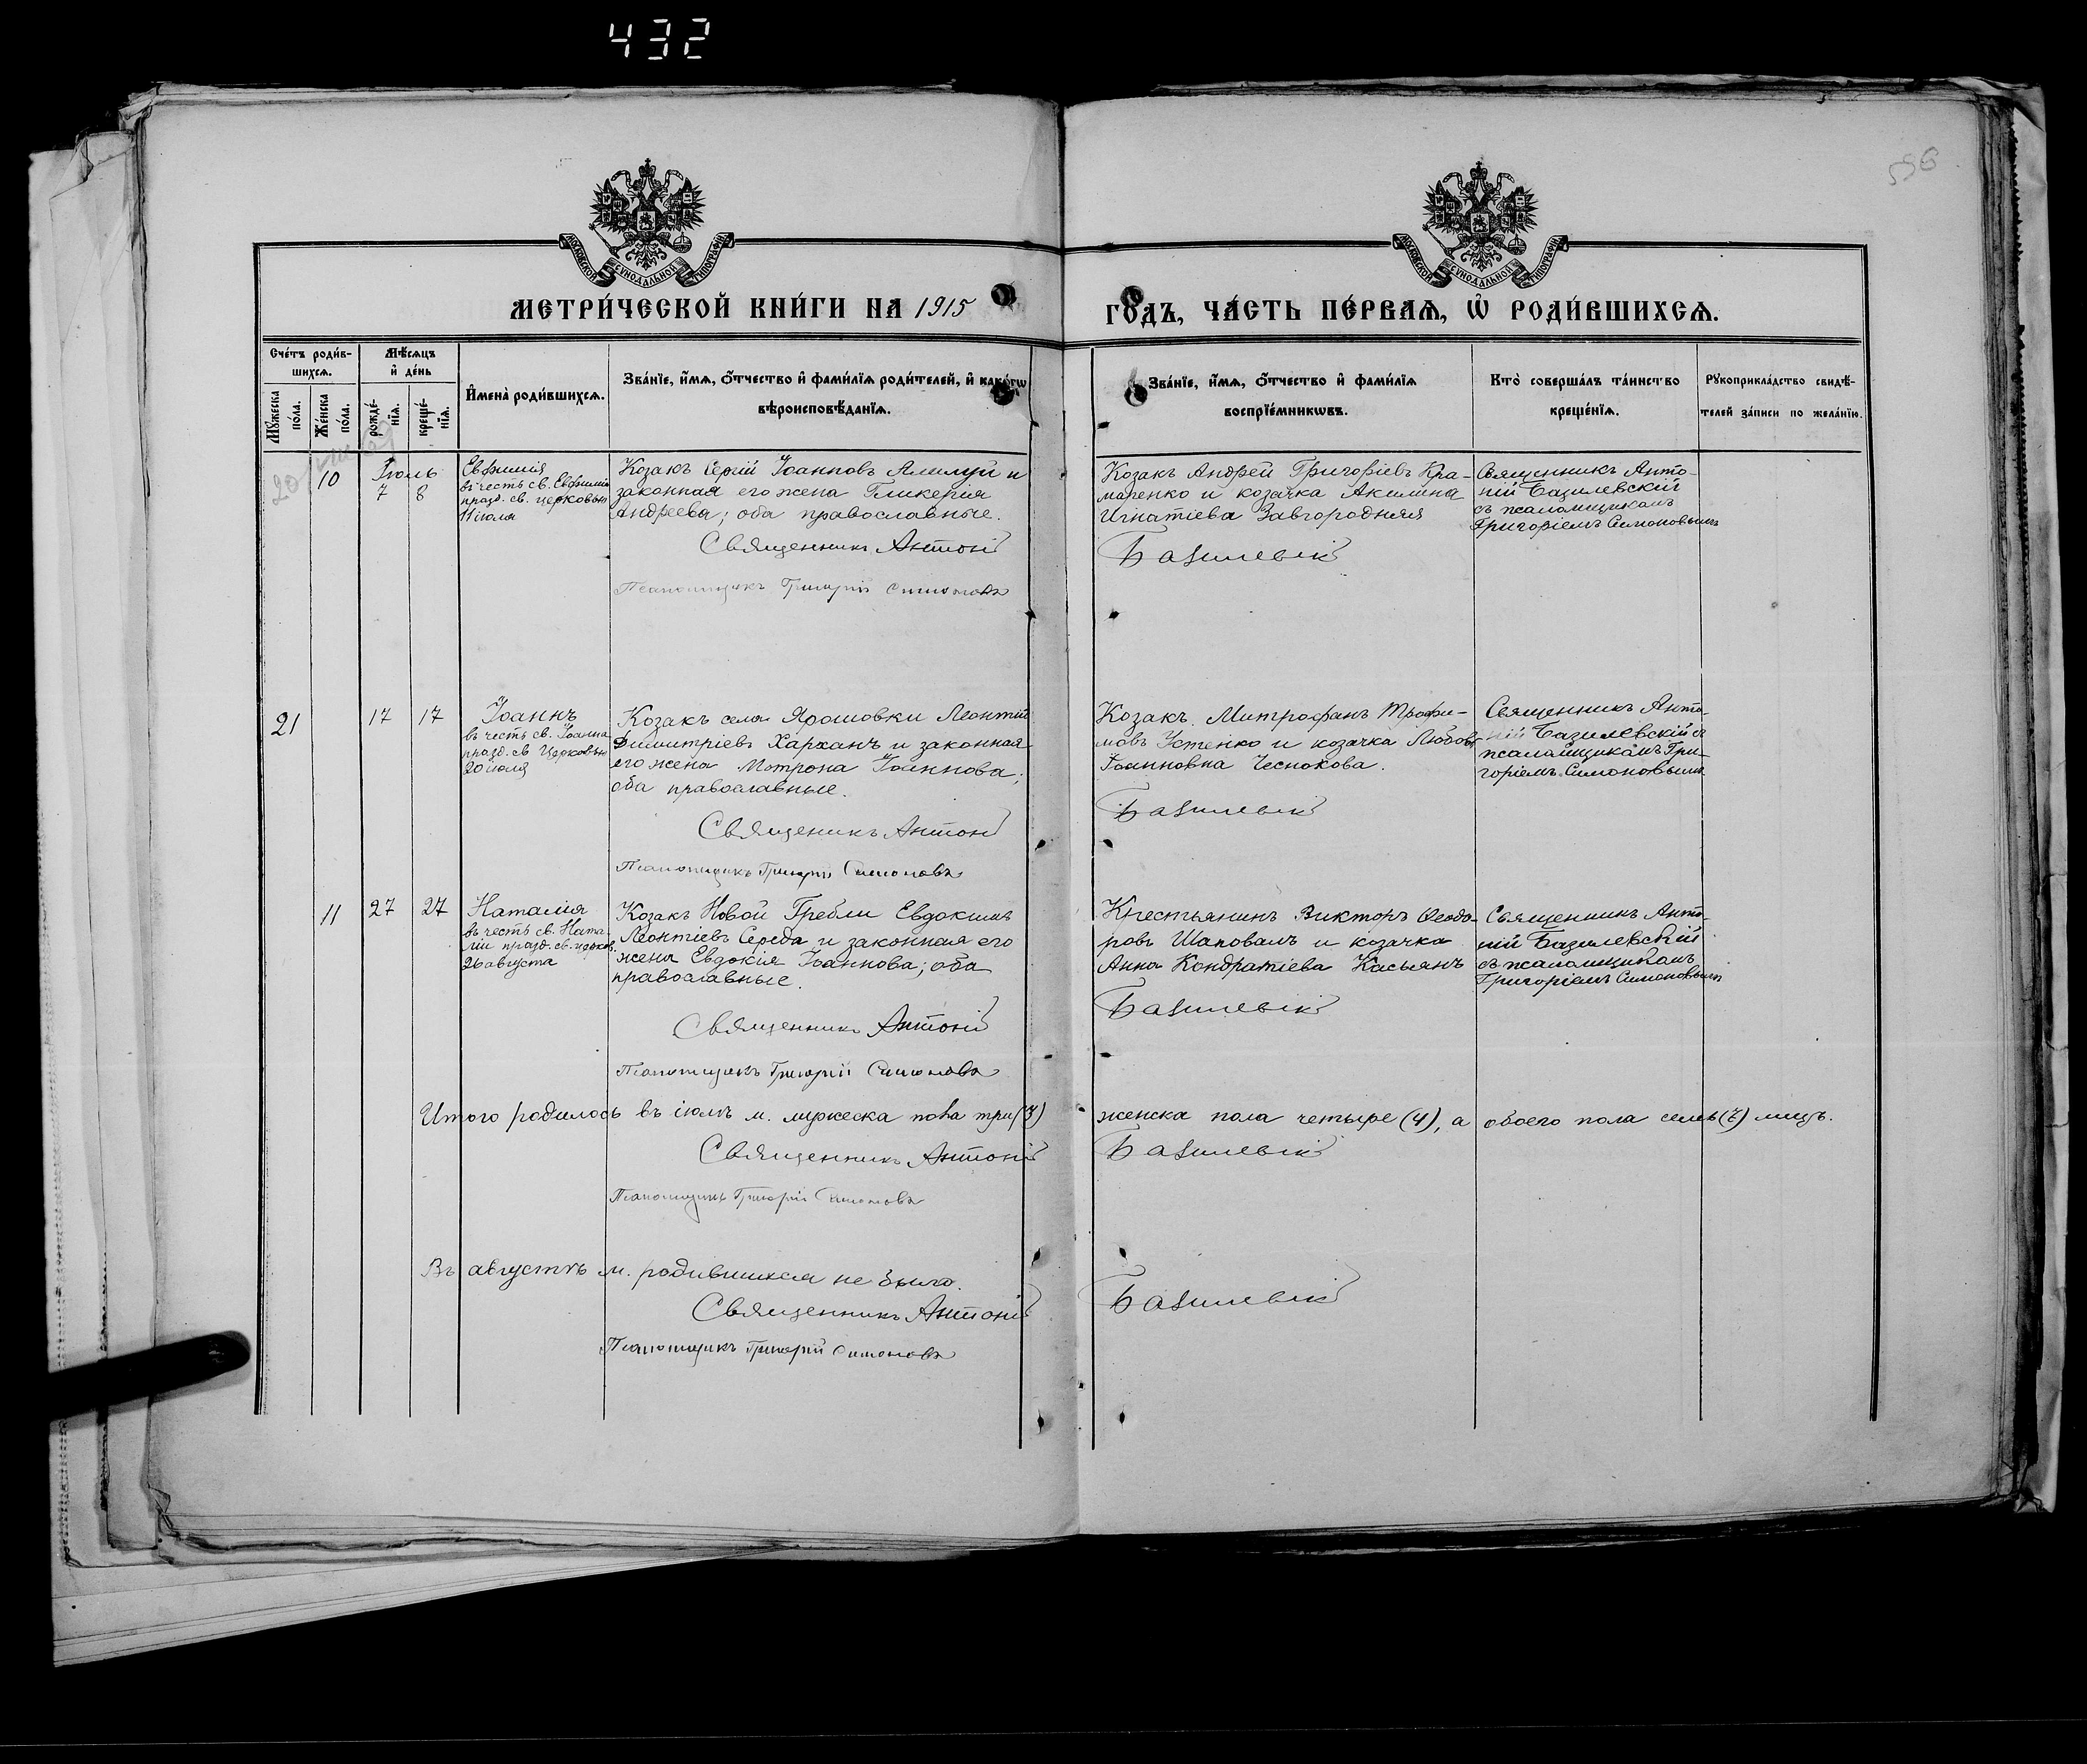 432
556
МОСКОВСКОЙ СѴНОДАЛЬНОЙ ТИПОГРАФІИ
МОСКОВСКОЙ СѴНОДАЛЬНОЙ ТИПОГРАФІИ
МЕТРИ́ЧЕСКОЙ КНИ́ГИ НА 1915
ГО́ДЪ, ЧА́СТЬ ПЕ́РВАѦ, Ѽ РОДИ́ВШИХСѦ.
Сче́тъ роди́в-
шихсѧ.
Мꙋ́жеска
по́ла.
Же́нска
по́ла.
Мѣ́сѧцъ
и҆ де́нь
рожде́-
нїѧ.
креще́-
нїѧ.
И҆мена̀ роди́вшихсѧ.
Зва́нїе, и҆́мѧ, ѻ҆́тчество и҆ фами́лїѧ роди́телей, и҆ како́гѡ
вѣроисповѣ́данїѧ.
Зва́нїе, и҆́мѧ, ѻ҆́тчество и҆ фами́лїѧ
воспрїе́мникѡвъ.
Кто̀ соверша́лъ та́инство
креще́нїѧ.
Рꙋкоприкла́дство свидѣ́-
телей за́писи по жела́нїю.
10
Іюль
7 8
Евфимія
въ честь св. Евфиміи
празд. св. церковью
11 іюля
Козакъ Сергій Іоанновъ Алилуй и
законная его жена Гликерія
Андреева; оба православные.
Священникъ Антоній
Псаломщикъ Григорій Симоновъ
Козакъ Андрей Григоріевъ Кра-
маренко и козачка Акилина
Игнатіева Завгородняя
Базилевскій
Священникъ Анто-
ній Базилевскій
съ псаломщикомъ
Григоріемъ Симоновымъ
21
17 17
Іоаннъ
въ честь св. Іоанна
празд. св. Церковью
20 іюля
Козакъ села Ярошовки Леонтій
Димитріевъ Харханъ и законная
его жена Мотрона Іоаннова;
оба православные.
Священникъ Антоній
Псаломщикъ Григорій Симоновъ
Козакъ Митрофанъ Трофи-
мовъ Устенко и козачка Любовь
Іоанновна Чеснокова.
Базилевскій
Священникъ Анто-
ній Базилевскій съ
псаломщикомъ Гри-
горіемъ Симоновымъ
11
27 27
Наталія
въ честь св. Ната-
ліи празд. св. церков.
26 августа
Козакъ Новой Гребли Евдокимъ
Леонтіевъ Середа и законная его
жена Евдокія Іоаннова; оба
православные.
Священникъ Антоній
Псаломщикъ Григорій Симоновъ
Крестьянинъ Викторъ Ѳеодо-
ровъ Шаповалъ и козачка
Анна Кондратіева Касьянъ
Базилевскій
Священникъ Анто-
ній Базилевскій
съ псаломщикомъ
Григоріемъ Симоновымъ
Итого родилось въ іюлѣ м. мужеска пола три (3) женска пола четыре (4), а обоего пола семь (7) лицъ.
Священникъ Антоній Базилевскій
Псаломщикъ Григорій Симоновъ
Въ августѣ м. родившихся не было.
Священникъ Антоній Базилевскій
Псаломщикъ Григорій Симоновъ